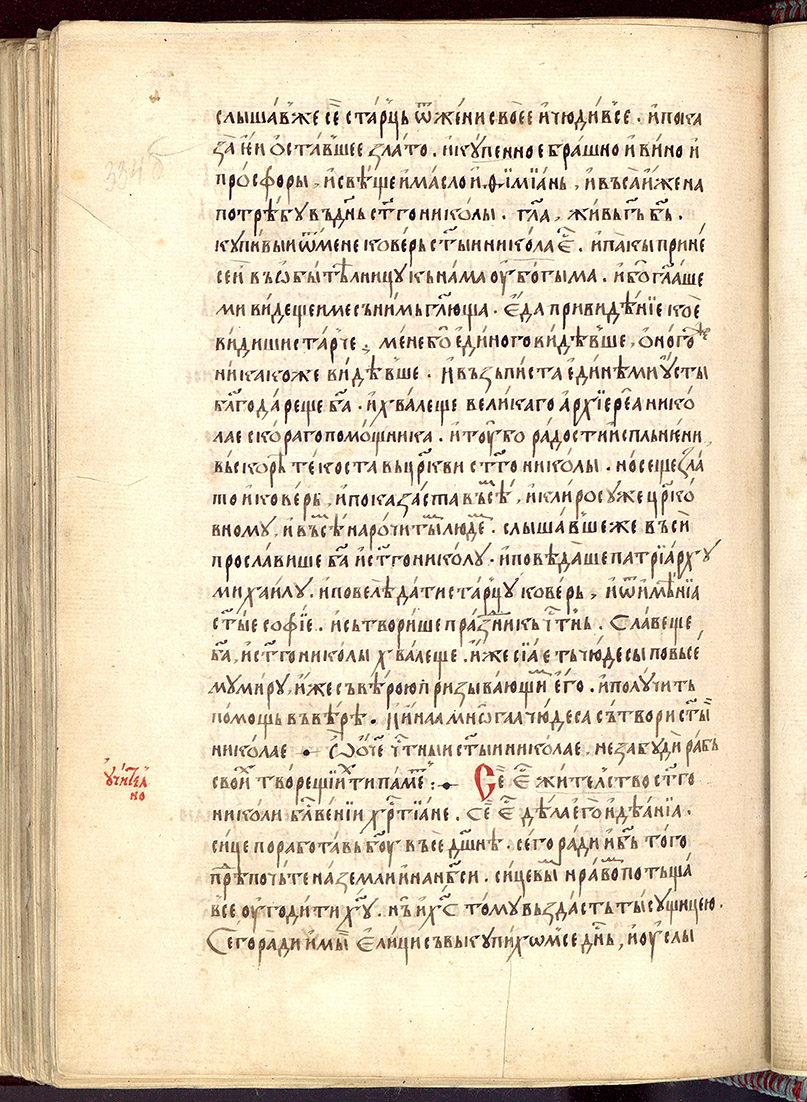 слыша́вже се̏ ста́рць ѿ жени своее и҆ чюди́все . и҆ пока
за̀ е҆́и ѻ҆ста́вшее зла́то . и҆ кꙋ́пенное бра́шно и҆ ви́но и҆
про́сфоры , и҆ свѣ́ще и҆ ма́сло и҆ ѳѵмїа́нь , и҆ вьса̀ и҆́же на
потрѣ́бꙋ въ дн҃ь ст҃го нико́лы . гл҃а , жи́вь г҃ь б҃ь .
кꙋпи́выи ѿ мене кове́рь ст҃ыи нико́лае . и҆ па́кы прине́
сеи въ ѡ҆би́тѣлницꙋ кь на́ма ᲂу҆бо́гыма . и҆бо̀ гл҃аше
ми ви́деще име съ ни́мь гл҃юща . Е҆да̀ привидѣ́нїе коѐ
ви́диши ста́рче , ме́не бо е҆ди́ного ви́дѣвше , ѻ҆ного́ же
ника́коже ви́дѣвше . И҆ възьпи́ста еди́нѣми ᲂу҆сты
бл҃года́реще б҃а . и҆ хва́леще вели́каго а҆рхїере́а нико́
лае ско́раго помо́щника . и҆ тᲂу҆́бо ра́дости и҆спльне́ни
въскорѣ̀ теко́ста вь цр҃кви ст҃го нико́лы . носе́ще зла́
то и҆ кове́рь , и҆ пока́заста вьсѣ́м , и҆ кли́росꙋ же цр҃ко́
вномꙋ , и҆ въсѣ́м наро́читым лю́дем . слыша́вше же въсѝ
просла́више б҃а и҆ ст҃го нико́лꙋ . и҆ повѣ́даше патрїа́рхꙋ
михаи́лꙋ . и҆ повелѣ̀ да́ти ста́рцꙋ кове́рь , и҆ ѿ и҆мѣ́нїа
ст҃ые софі́е . и҆ сьтвори́ше пра́зникь чт҃нь . Сла́веще
б҃а , и҆ ст҃го нико́лы хва́леще . и҆́же сїа́еть чюдесы̀ по вьсе́
мꙋ ми́рꙋ , и҆́же съ вѣ́рою призыва́ющим е҆го̀ . и҆ полꙋ́чить
по́мощь въ вѣ́рѣ . И҆ и҆́наа мнѡ҆гаа чю́деса сътвори ст҃ыи
нико́лае Ѡ ѻ҆́че чт҃ныи ст҃ыи нико́лае , не забꙋ́ди ра́бь
свои́х творе́щїих ти па́мет : Се̏ Е҆с жи́телство ст҃го
ᲂу҆чи́телно
нико́ли бл҃ве́нїи хр҃тїа́не . Се̏ Е҆с дѣ́ла е҆го̀ и҆ дѣа́нїа .
си́це порабо́тавь б҃ᲂу въсе дш҃нѣ . се́го ра́ди и҆ б҃ь то́го
прѣ́почьте на́ земли и҆ на нб҃си . си́цевым нра́вом потьща́
все ᲂу҆годи́ти хꙋ҃ . нь̀ и҆ х҃с то́мꙋ въздасть ты́сꙋщицею .
Сего̀ ра́ди и҆ мы̀ Е҆ли́ци съвькꙋпи́хѡмсе дн҃ь , и҆ ᲂу҆слы